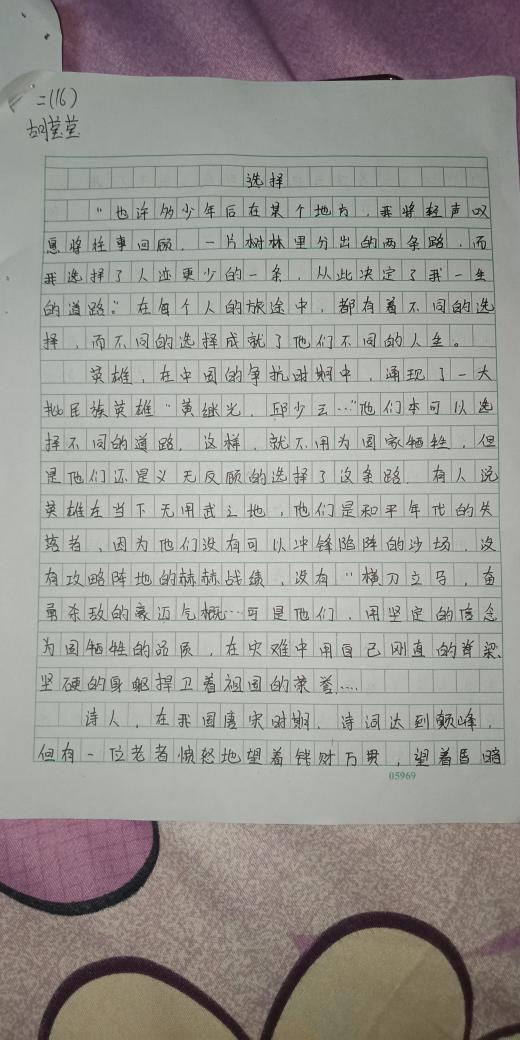 二(16)
胡莹莹
选择
"也许多少年后在某个地方，我将轻声叹
息将往事回顾，一片树林里分出的两条路，而
我选择了人迹更少的一条，从此决定了我一生
的道路。"在每个人的旅途中，都有着不同的选
择，而不同的选择成就了他们不同的人生。
英雄，在中国的争抗时期中，涌现了一大
批民族英雄"黄继光，邱少云…"他们本可以选
择不同的道路，这样，就不用为国家牺牲，但
是他们还是义无反顾的选择了这条路，有人说
英雄在当下无用武之地，他们是和平年代的失
落者，因为他们没有可以冲锋陷阵的沙场，没
有攻略阵地的赫赫战绩，没有"横刀立马，奋
勇杀敌的豪迈气概…可是他们，用坚定的信念
为国牺牲的品质，在灾难中用自己刚直的脊梁、
坚硬的身躯捍卫着祖国的荣誉……
诗人，在我国唐宋时期，诗词达到巅峰，
但有一位老者愤怒地望着钱财万贯，望着昏暗
05969